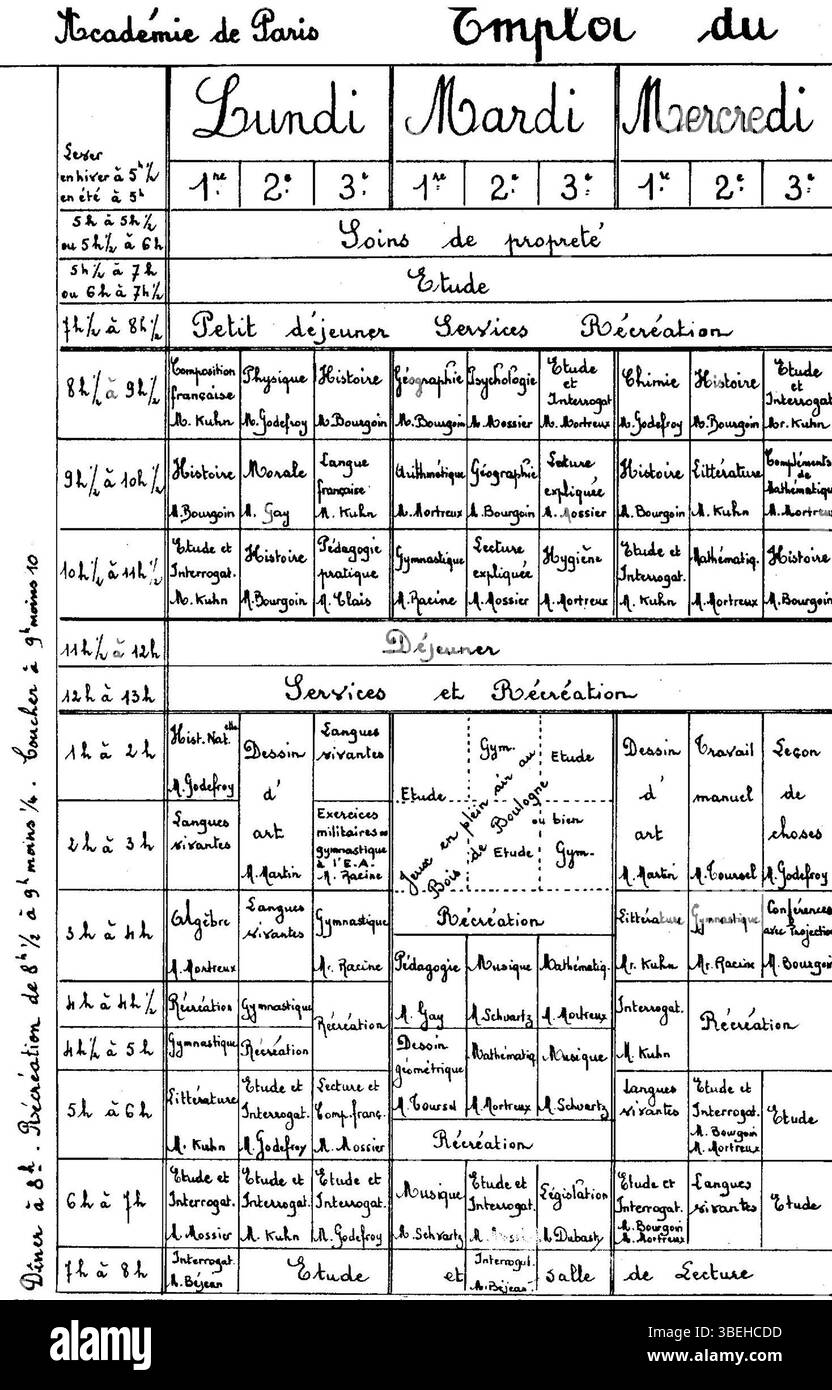 Académie de Paris Emploi du
Lundi Mardi Mercredi
Lever
en hiver à 5h½
en été à 5h
1re 2e 3e 1re 2e 3e 1re 2e 3e
5h à 5h½
ou 5h½ à 6h
Soins de propreté
5h½ à 7h
ou 6h à 7h½
Etude
7h½ à 8h½ Petit déjeuner Services Récréation
8h½ à 9h½
Composition française M. Kuhn
Physique M. Godefroy
Histoire M. Bourgoin
Géographie M. Bourgoin
Psychologie M. Mossier
Etude et Interrogat M. Mortreux
Chimie M. Godefroy
Histoire M. Bourgoin
Etude et Interrogat Mr. Kuhn
9h½ à 10h½
Histoire M. Bourgoin
Morale M. Gay
Langue française M. Kuhn
Arithmétique M. Mortreux
Géographie M. Bourgoin
Lecture expliquée M. Mossier
Histoire M. Bourgoin
Littérature M. Kuhn
Compléments de Mathématique M. Mortreux
10h½ à 11h½
Etude et Interrogat. M. Kuhn
Histoire M. Bourgoin
Pédagogie pratique M. Clais
Gymnastique M. Racine
Lecture expliquée M. Mossier
Hygiène M. Mortreux
Etude et Interrogat. M. Kuhn
Mathématiq. M. Mortreux
Histoire M. Bourgoin
11h½ à 12h Déjeuner
12h à 13h Services et Récréation
1h à 2h
Hist. Nat.elle M. Godefroy
Dessin d'art M. Martin
Langues vivantes
Etude
Gym.
Etude
Jeux en plein air au
Bois de Boulogne
Dessin d'art M. Martin
Travail manuel M. Toursel
Leçon de choses M. Godefroy
2h à 3h
Langues vivantes
Exercices militaires ou gymnastique à l'E.A. M. Racine
Etude
ou bien
Gym.
3h à 4h
Algèbre M. Mortreux
Langues vivantes
Gymnastique Mr. Racine
Récréation
Pédagogie M. Gay
Musique M. Schvartz
Mathématiq. M. Mortreux
Littérature Mr. Kuhn
Gymnastique Mr. Racine
Conférences avec Projection M. Bourgoin
4h à 4h½
Récréation
Gymnastique
Récréation
Interrogat. M. Kuhn
Récréation
4h½ à 5h
Gymnastique
Récréation
Dessin géométrique M. Toursel
Mathématiq M. Mortreux
Musique M. Schvartz
5h à 6h
Littérature M. Kuhn
Etude et Interrogat. M. Godefroy
Lecture et Comp. franç. M. Mossier
Récréation
Langues vivantes
Etude et Interrogat. M. Bourgoin M. Mortreux
Etude
6h à 7h
Etude et Interrogat. M. Mossier
Etude et Interrogat. M. Kuhn
Etude et Interrogat. M. Godefroy
Musique M. Schvartz
Etude et Interrogat.
Législation M. Dubasty
Etude et Interrogat. M. Bourgoin M. Mortreux
Langues vivantes
Etude
7h à 8h
Interrogat. M. Béjean
Etude et
Interrogat. M. Béjean
Salle de Lecture
Dîner à 8h. Récréation de 8h½ à 9h moins ¼. Coucher à 9h moins 10
alamy
Image ID: 3BEHCDD
www.alamy.com